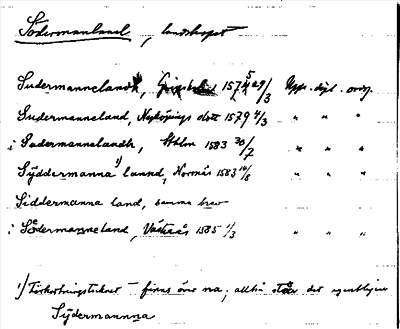 Södermanland, landskapet
Sudermannelandh, Gripsholm 1575 29/3 Upps. dipl. orig.
Sudermanneland, Nyköpings slott 1579 4/3 " " "
i Sudermannelandh, Sthlm 1583 20/7 " " "
Syddermanna¹) lannd, Norrnäs 1583 14/8 " " "
Siddermanna land, samma brev
i Södermanneland, Västerås 1585 1/3 " " "
¹) Förkortningstecknet - finns över na; alltså står det egentligen
Syddermannna